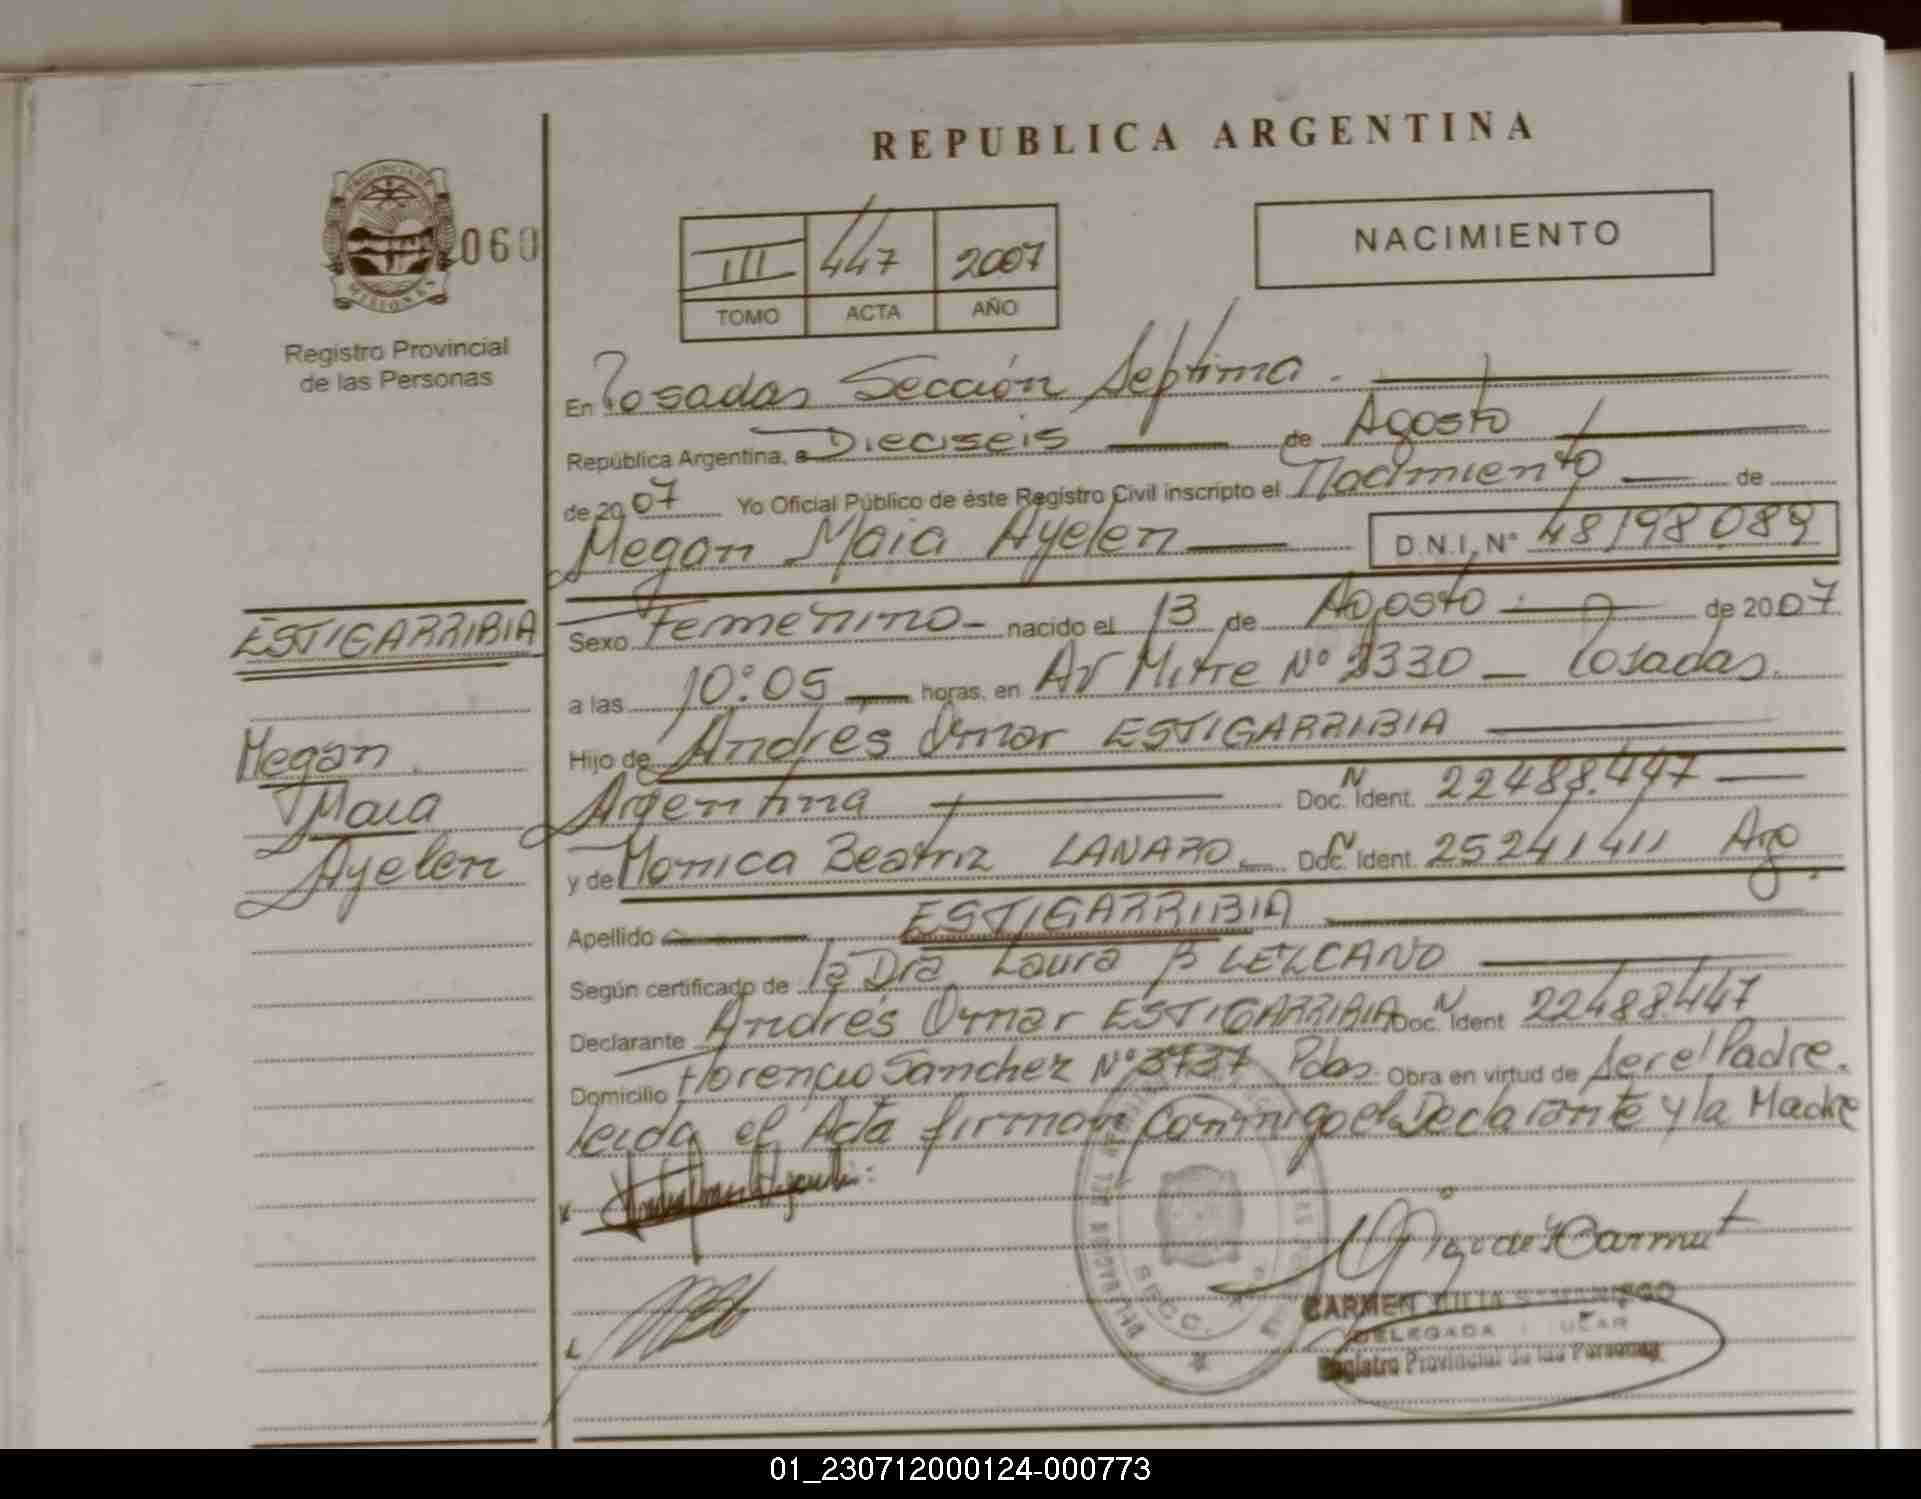 REPUBLICA ARGENTINA
PROVINCIA DE
MISIONES
060
Registro Provincial
de las Personas
III 447 2007
TOMO ACTA AÑO
NACIMIENTO
En Posadas Sección Septima.
República Argentina, a Dieciseis de Agosto
de 2007 Yo Oficial Público de éste Registro Civil inscripto el Nacimiento de
Megan Maia Ayelen D.N.I. N° 48198.089
ESTIGARRIBIA
Megan
Maia
Ayelen
Sexo Femenino - nacido el 13 de Agosto de 2007
a las 10:05 horas, en Av Mitre N° 2330 - Posadas.
Hijo de Andrés Omar ESTIGARRIBIA
Argentina Doc. N Ident. 22488.447
y de Monica Beatriz LANARO Doc. N Ident. 25241411 Arg.
Apellido ESTIGARRIBIA
Según certificado de la Dra Laura B LEZCANO
Declarante Andrés Omar ESTIGARRIBIA Doc. N Ident 22488.447
Domicilio Florencio Sanchez N° 3737 Pdas. Obra en virtud de Ser el Padre.
Leida el Acta firman Conmigo el Declarante y la Madre
SECC.
CARMEN JULIA SAMANIEGO
DELEGADA
Registro Provincial de las Personas
01_230712000124-000773